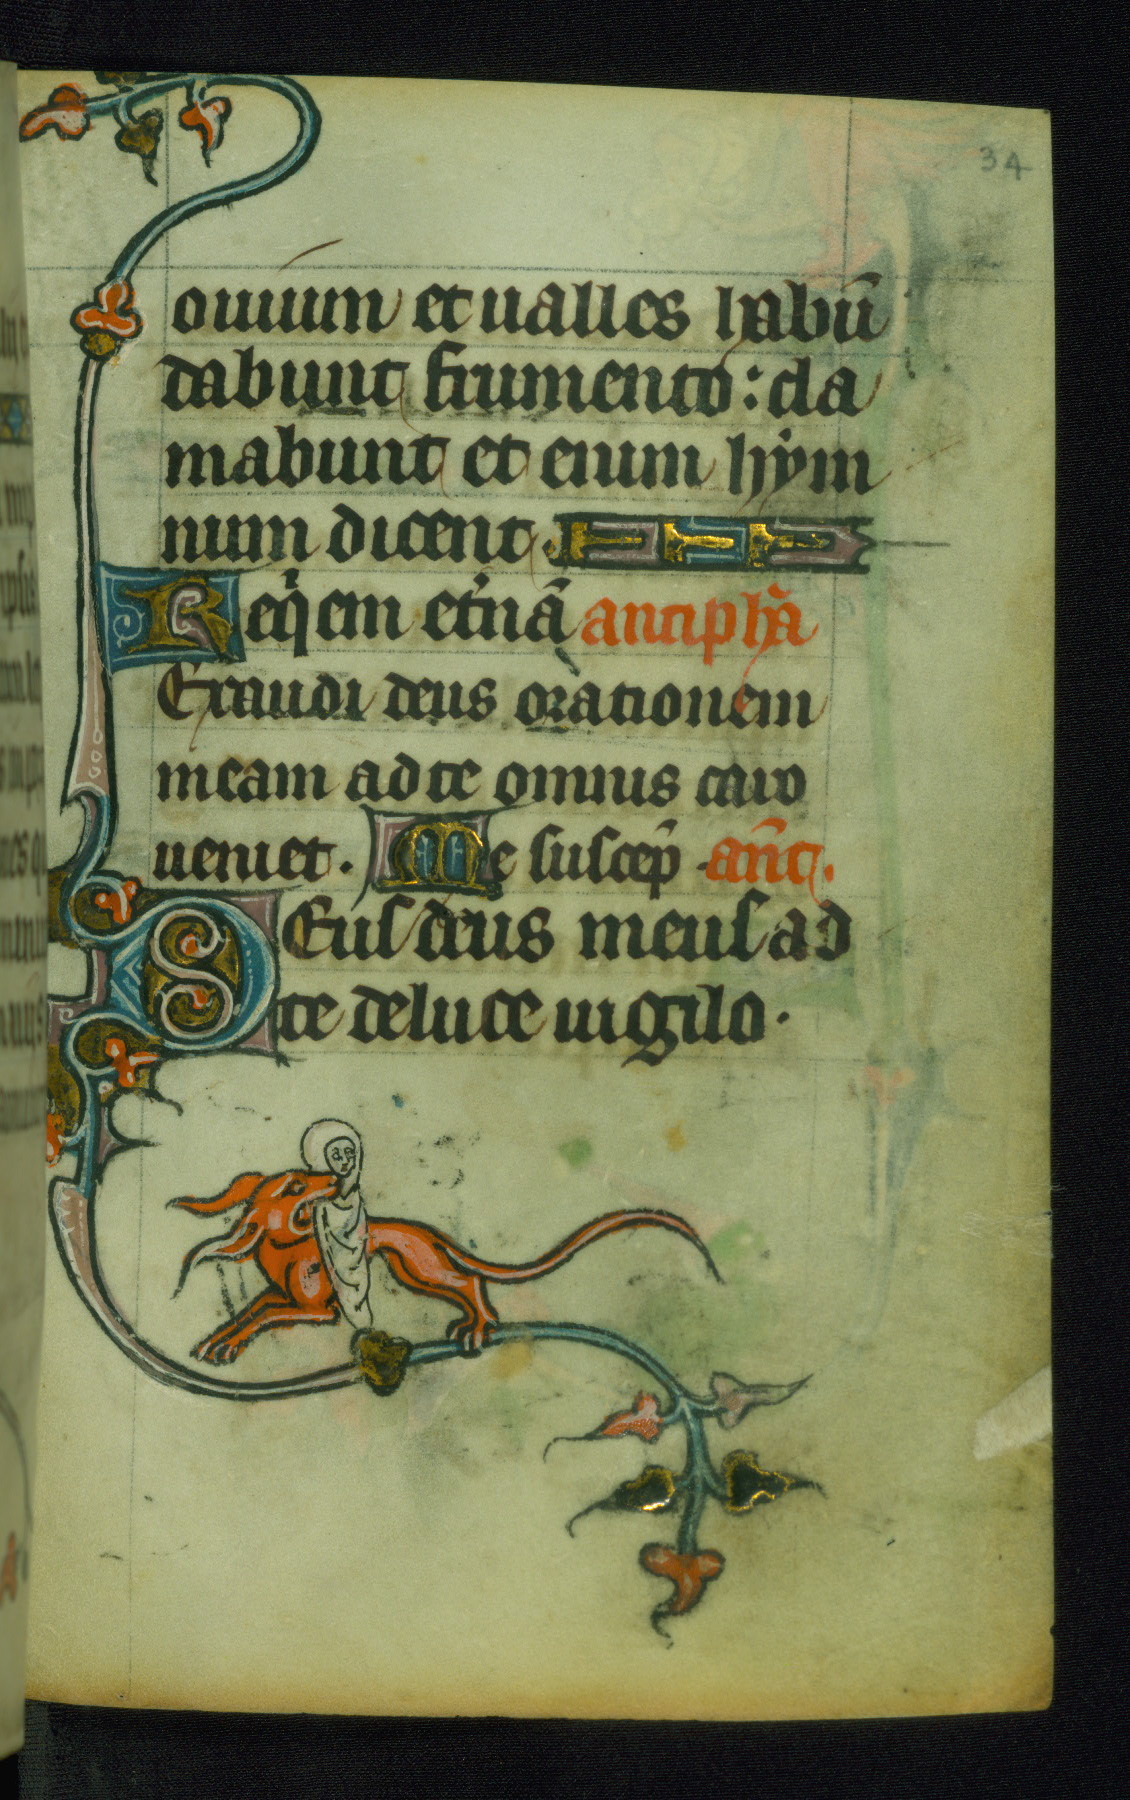 34
ouium et ualles habū
dabunt frumento: cla
mabunt et enim hẏm
num dicent.
Reqͥem et͛nā antiph̄a
Exaudi deus orationem
meam ad te omnis caro
ueniet. Me suscep̄ . an̄t.
Deus deus meus ad
te de luce uigilo.